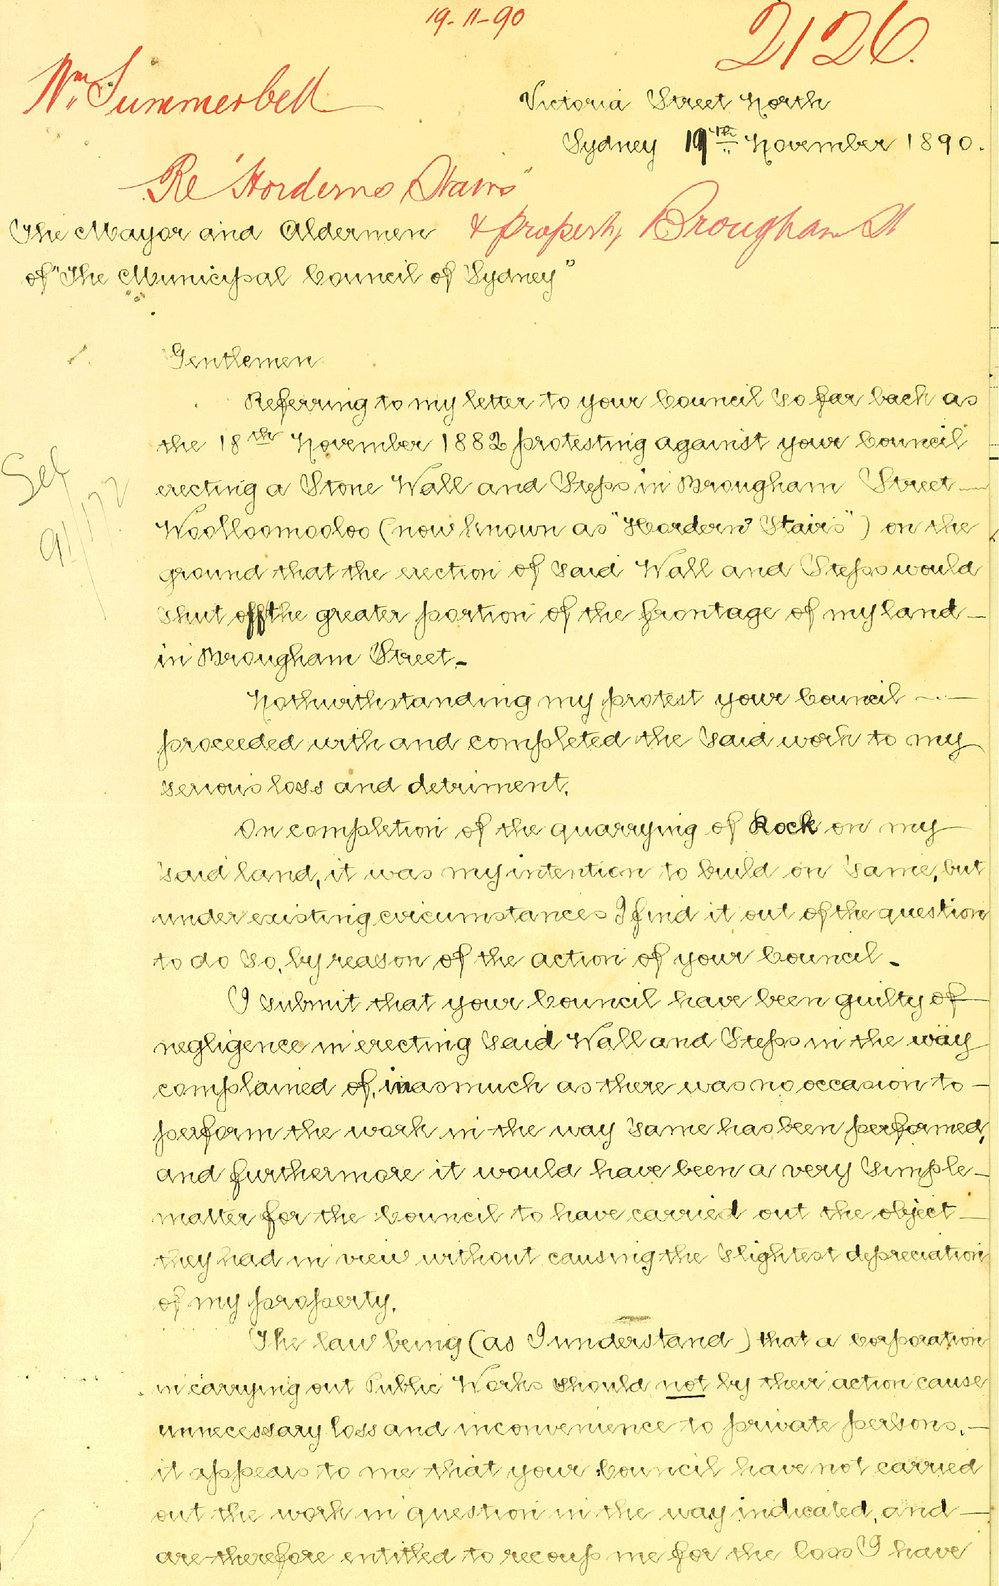 19-11-90
2126.
Wm. Summerbell
Victoria Street North
Sydney 19th November 1890.
Re "Horderns Stairs"
& property Brougham St
The Mayor and Aldermen
of "The Municipal Council of Sydney"
Gentlemen
Referring to my letter to your Council so far back as
the 18th November 1882 protesting against your Council
erecting a Stone Wall and Steps in Brougham Street
Woolloomooloo (now known as "Hordern' Stairs") on the
ground that the erection of said Wall and Steps would
shut off the greater portion of the frontage of my land
in Brougham Street.
Nothwithstanding my protest your Council
proceeded with and completed the said work to my
serious loss and detriment.
On completion of the quarrying of Rock on my
said land, it was my intention to build on same, but
under existing circumstances I find it out of the question
to do so, by reason of the action of your Council.
I submit that your Council have been guilty of
negligence in erecting said Wall and Steps in the way
complained of, inasmuch as there was no occasion to
perform the work in the way same has been performed,
and furthermore it would have been a very simple
matter for the Council to have carried out the object
they had in view without causing the slightest depreciation
of my property.
The law being (as I understand) that a Corporation
in carrying out Public Works should not by their action cause
unnecessary loss and inconvenience to private persons,
it appears to me that your Council have not carried
out the work in question in the way indicated, and
are therefore entitled to recoup me for the loss I have